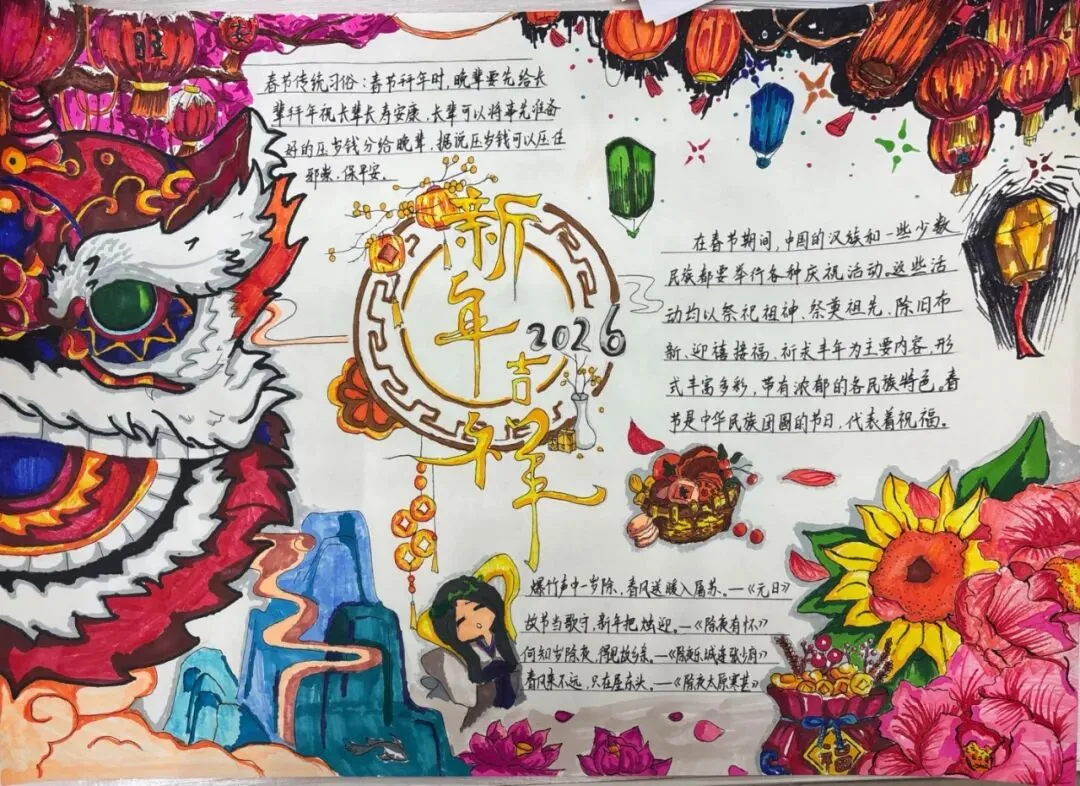 旺
春节传统习俗：春节拜年时，晚辈要先给长
辈拜年祝长辈长寿安康，长辈可以将事先准备
好的压岁钱分给晚辈，据说压岁钱可以压住
邪祟，保平安。
新年吉祥
2026
在春节期间，中国的汉族和一些少数
民族都要举行各种庆祝活动。这些活
动均以祭祀祖神、祭奠祖先、除旧布
新、迎禧接福、祈求丰年为主要内容，形
式丰富多彩，带有浓郁的各民族特色。春
节是中华民族团圆的节日，代表着祝福。
爆竹声中一岁除，春风送暖入屠苏。—《元日》
故节当歌守，新年把烛迎。—《除夜有怀》
何知岁除夜，得见故乡亲。—《除夜乐城逢张少府》
春风来不远，只在屋东头。—《除夜太原寒甚》
福